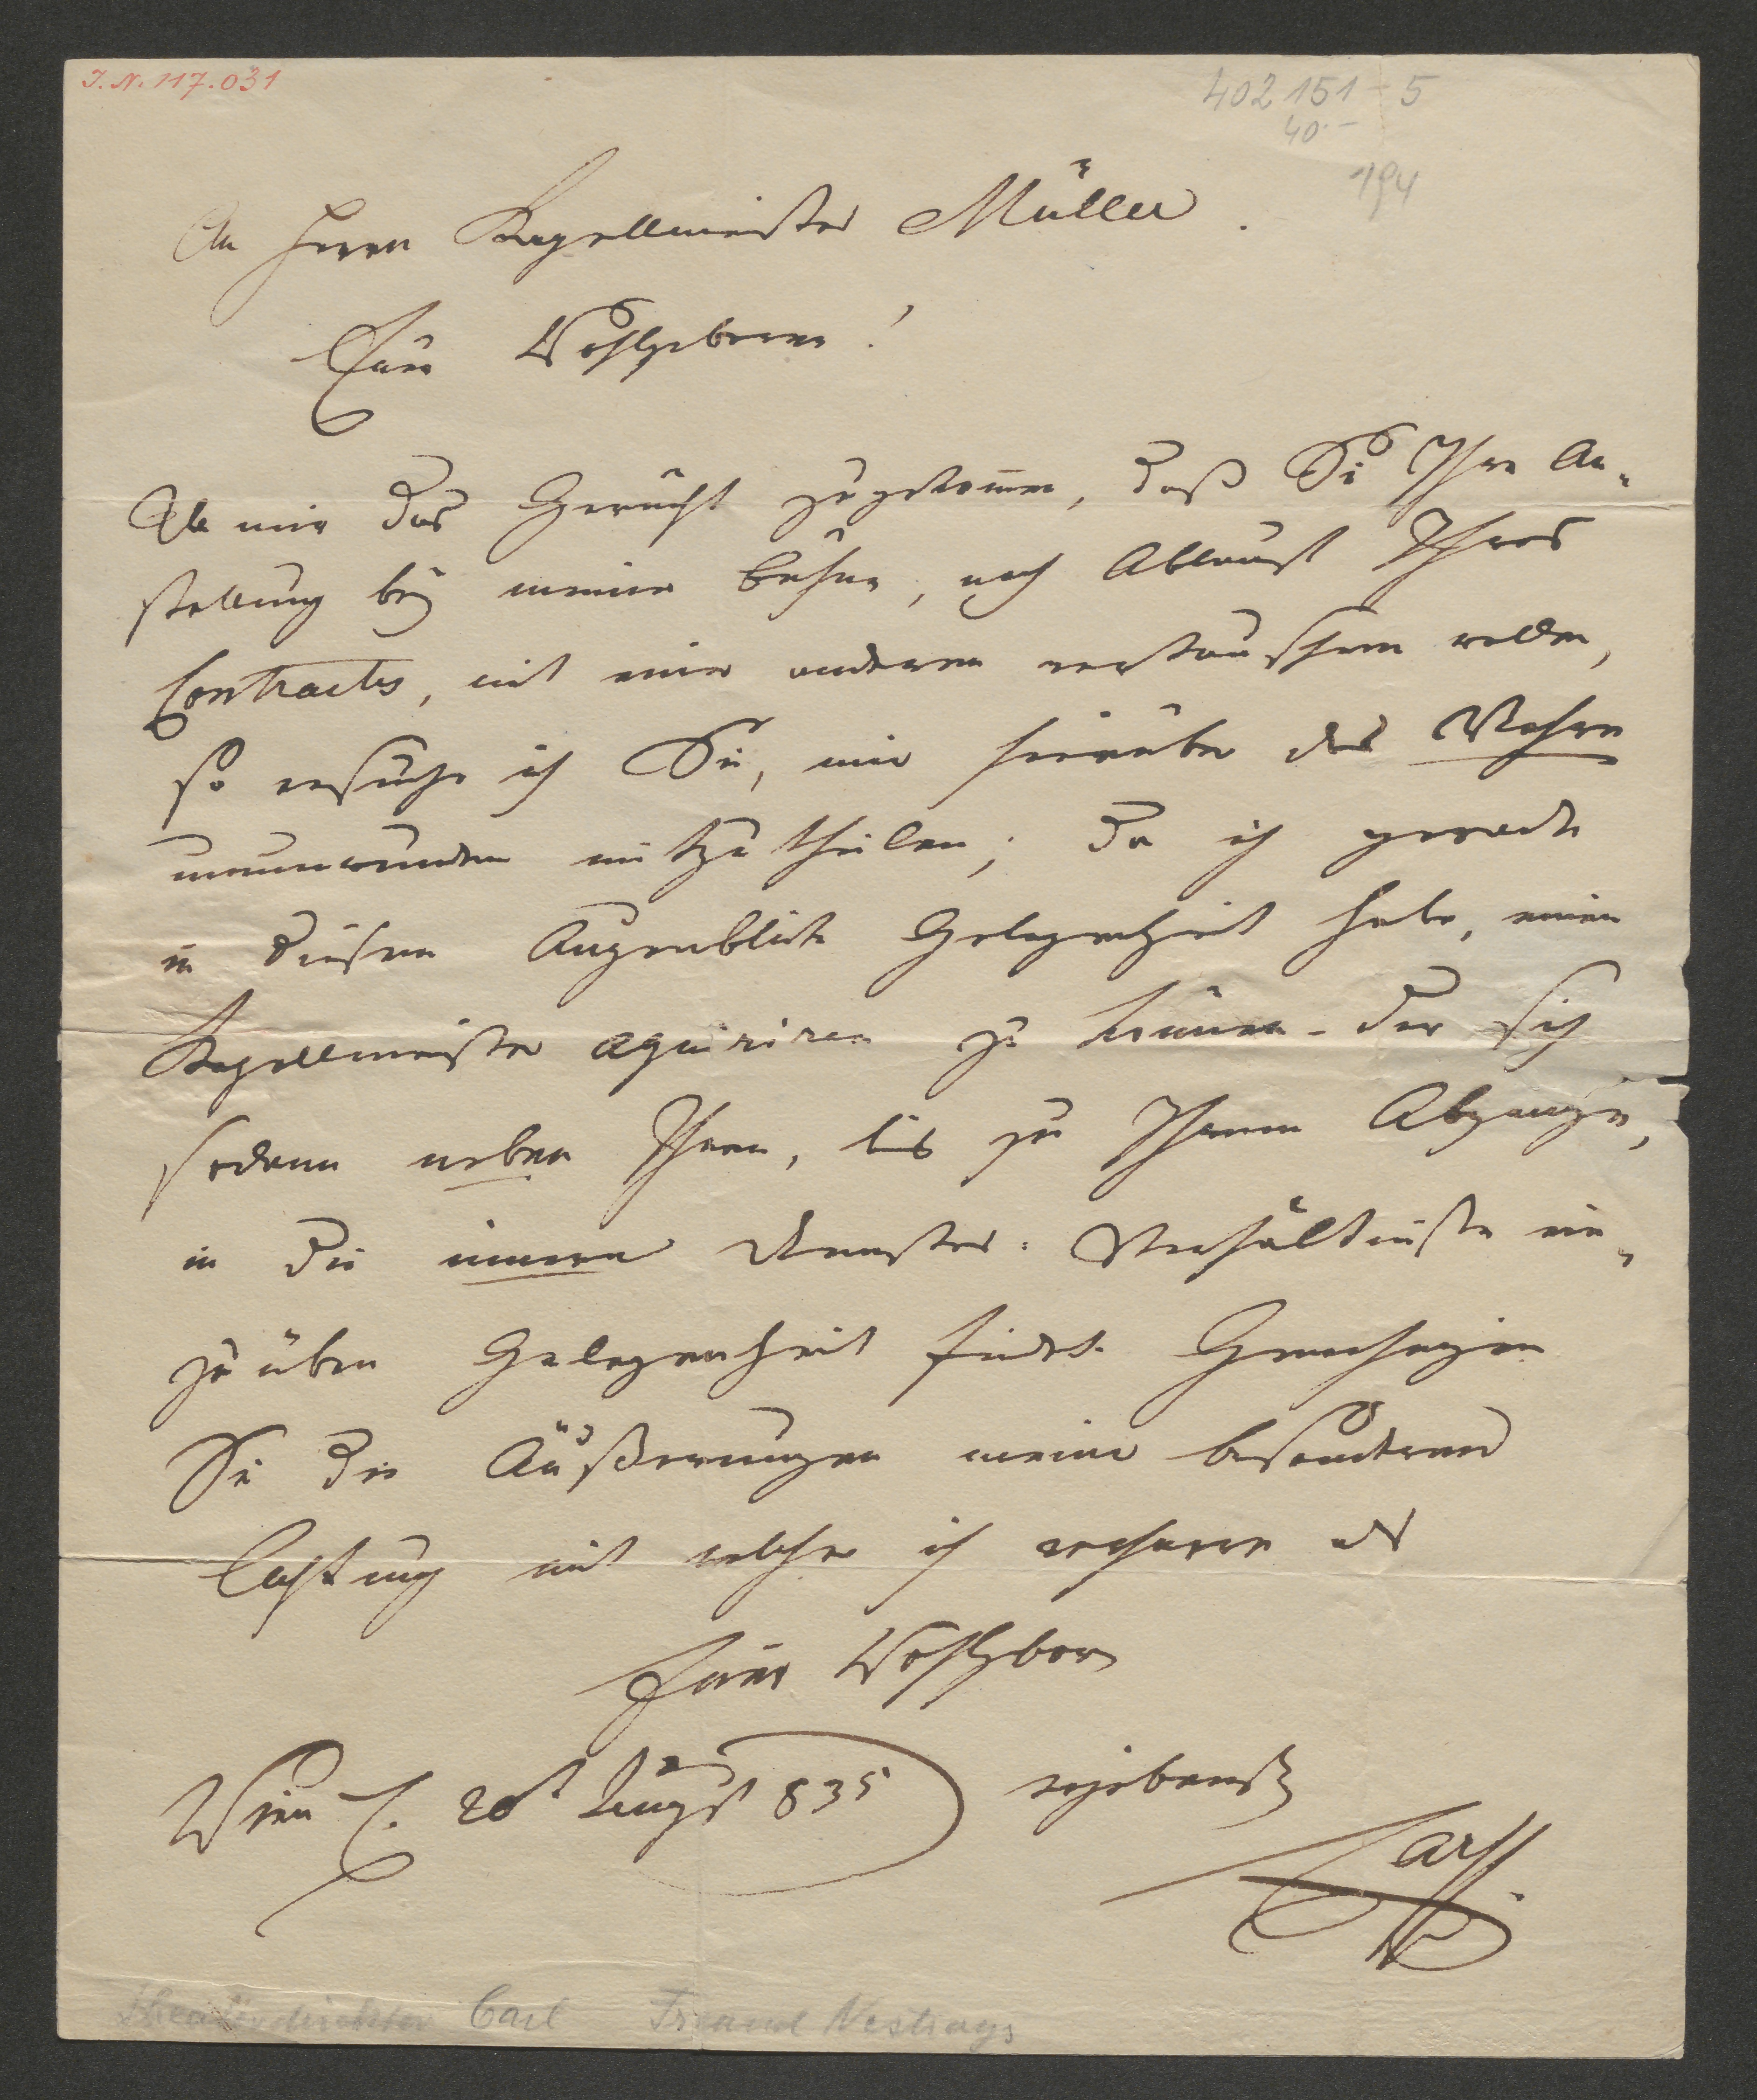 I. N. 117.031
402 151 - 5
40.-
194
An Herrn Kapellmeister Müller.
Euer Wohlgeboren!
Da mir das Gerücht zugekom̅en, daß Sie Ihre An-
stellung bey meiner Bühne, nach Ablauf Ihres
Contractes, mit einer anderen vertauschen wollen,
so ersuche ich Sie, mir hierüber das Wahre
unumwunden mitzutheilen; da ich gerade
in diesem Augenblicke Gelegenheit habe, einen
Kapellmeister aquiriren zu können - der sich
sodann neben Ihnen, bis zu Ihrem Abgange,
in die innern Theater-Verhältnisse ein-
zuüben Gelegenheit findet. Genehmigen
Sie die Äußerungen meiner besonderen
Achtung mit welcher ich verharre als
Euer Wohlgeborn
Wien d. 20t August 835 ergebenster
Carl
Theaterdirektor Carl Freund Nestroys